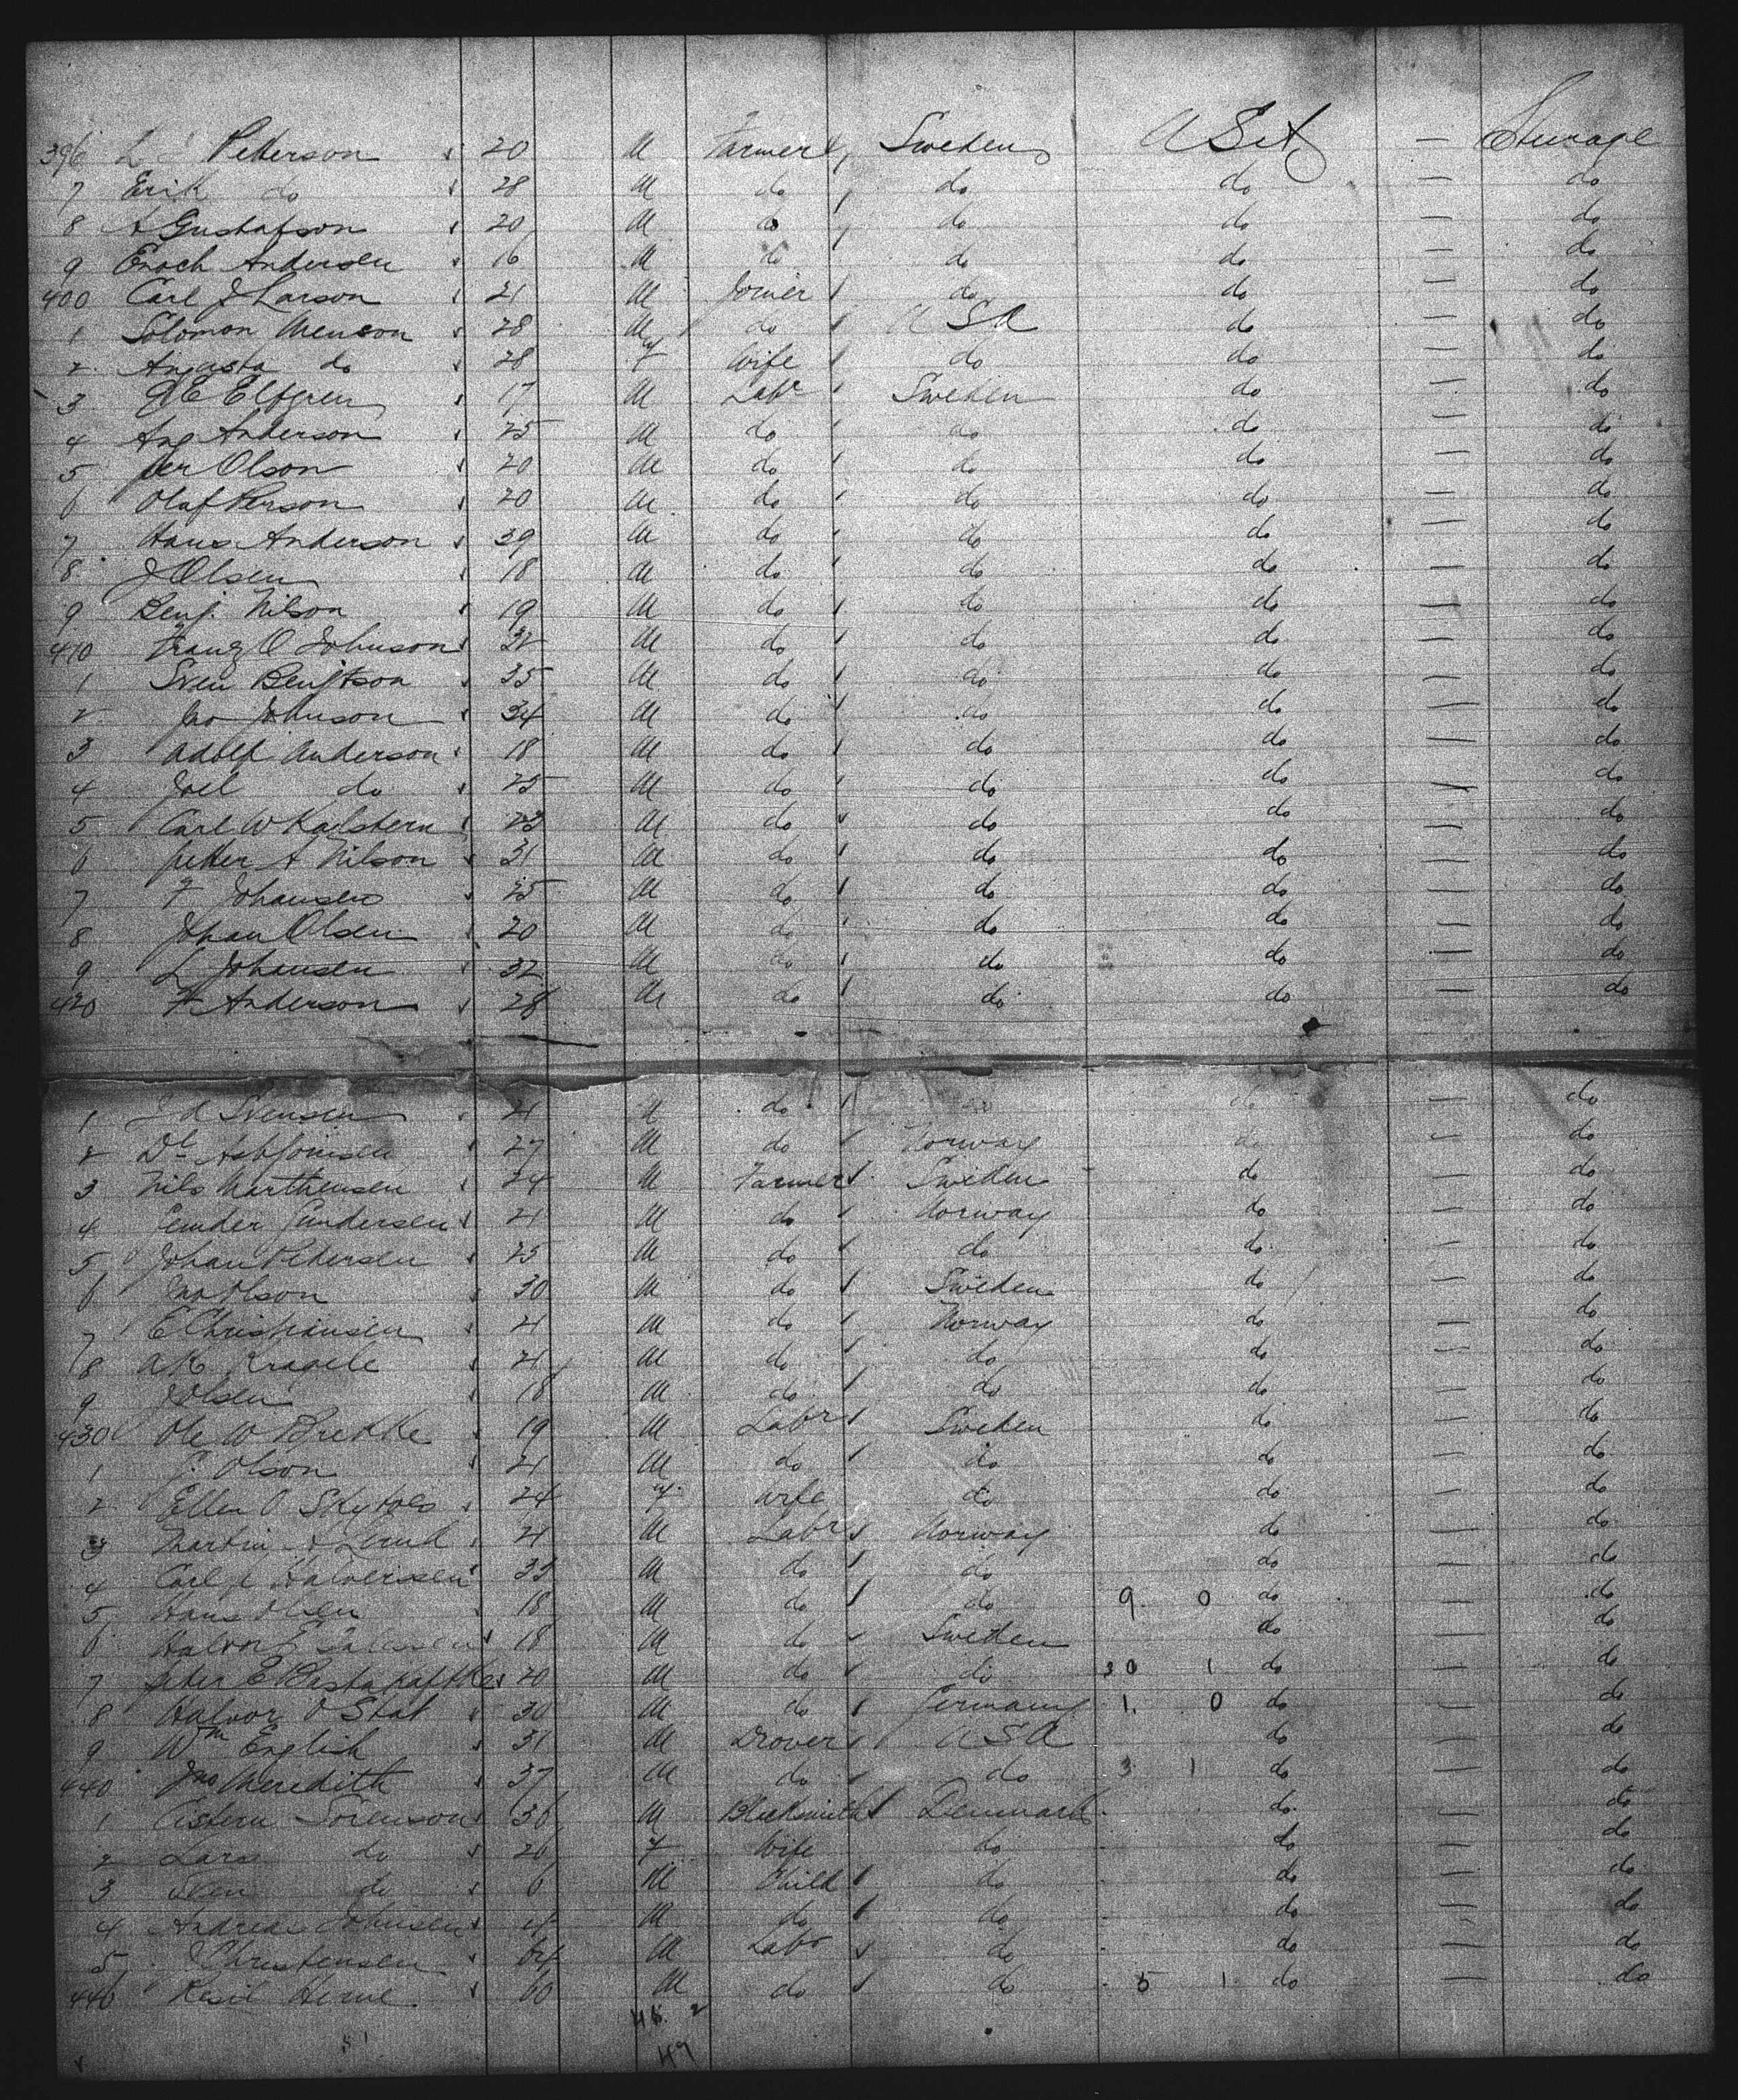 396 L J Petterson 20 M Farmer Sweden U St — Steerage
7 Erik do 28 M do do do — do
8 A Gustafson 20 M do do do — do
9 Enoch Andersen 16 M do do do — do
400 Carl J Larson 21 M Joiner do do — do
1 Solomon Menson 28 M do U S A do — do
2 Augusta do 28 F Wife do do — do
3 Elfgren 17 M Labr Sweden do — do
4 Aug Anderson 25 M do do do — do
5 Per Olson 20 M do do do — do
6 Olaf Person 20 M do do do — do
7 Hans Anderson 39 M do do do — do
8 J Olsen 18 M do do do — do
9 Benj. Nilson 19 M do do do — do
410 Franz O Johnson 32 M do do do — do
1 Sven Bengtson 35 M do do do — do
2 Jno Johnson 34 M do do do — do
3 Adolf Anderson 18 M do do do — do
4 Joel do 25 M do do do — do
5 Carl W Karlstern 23 M do do do — do
6 Petter A Nilson 31 M do do do — do
7 F Johansen 25 M do do do — do
8 Johan Olsen 20 M do do do — do
9 L Johansen 32 M do do do — do
420 F Anderson 28 M do do do — do
1 Svensen 21 M do do do — do
2 Asbjornsen 27 M do Norway do — do
3 Nils Marthensen 24 M Farmer Sweden do — do
4 Gunder Gundersen 21 M do Norway do — do
5 Johan Petersen 25 M do do do — do
6 Jno Olson 30 M do Sweden do — do
7 E Christiansen 21 M do Norway do — do
8 Kragele 21 M do do do — do
9 J Olsen 18 M do do do — do
430 Ole W Brekke 19 M Labr Sweden do — do
1 J. Olson 21 M do do do — do
2 Ellen O 24 F Wife do do — do
3 Martin 21 M Labr Norway do — do
4 Carl Halversen 33 M do do do — do
5 Hans Olsen 18 M do do 9 0 do — do
6 Halvor 18 M do Sweden do — do
7 Peter E 20 M do do 30 1 do — do
8 Halvor O Stat 30 M do Germany 1 0 do — do
9 Wm English 31 M Drover U S A do — do
440 Jno Meredith 37 M do do 3 1 do — do
1 Sorenson 30 M Blacksmith Denmark do — do
2 Lars do 26 F Wife do do — do
3 Sven do 6 M Child do do — do
4 Andreas Johnsen 4 M do do do — do
5 J Christensen 64 M Labr do do — do
446 60 M do do 5 1 do — do
48 2
49